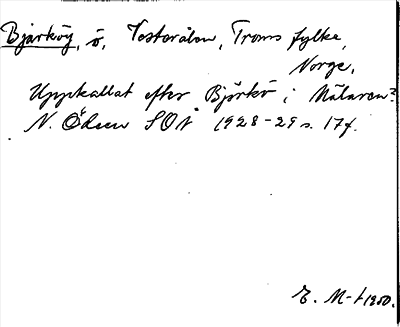 Bjarköy, ö, Vesterålen, Troms fylke,
Norge.
Uppkallat efter Björkö i Mälaren?
N. Ödeen SOÅ 1928-29 s. 17f.
E. M-t 1950.